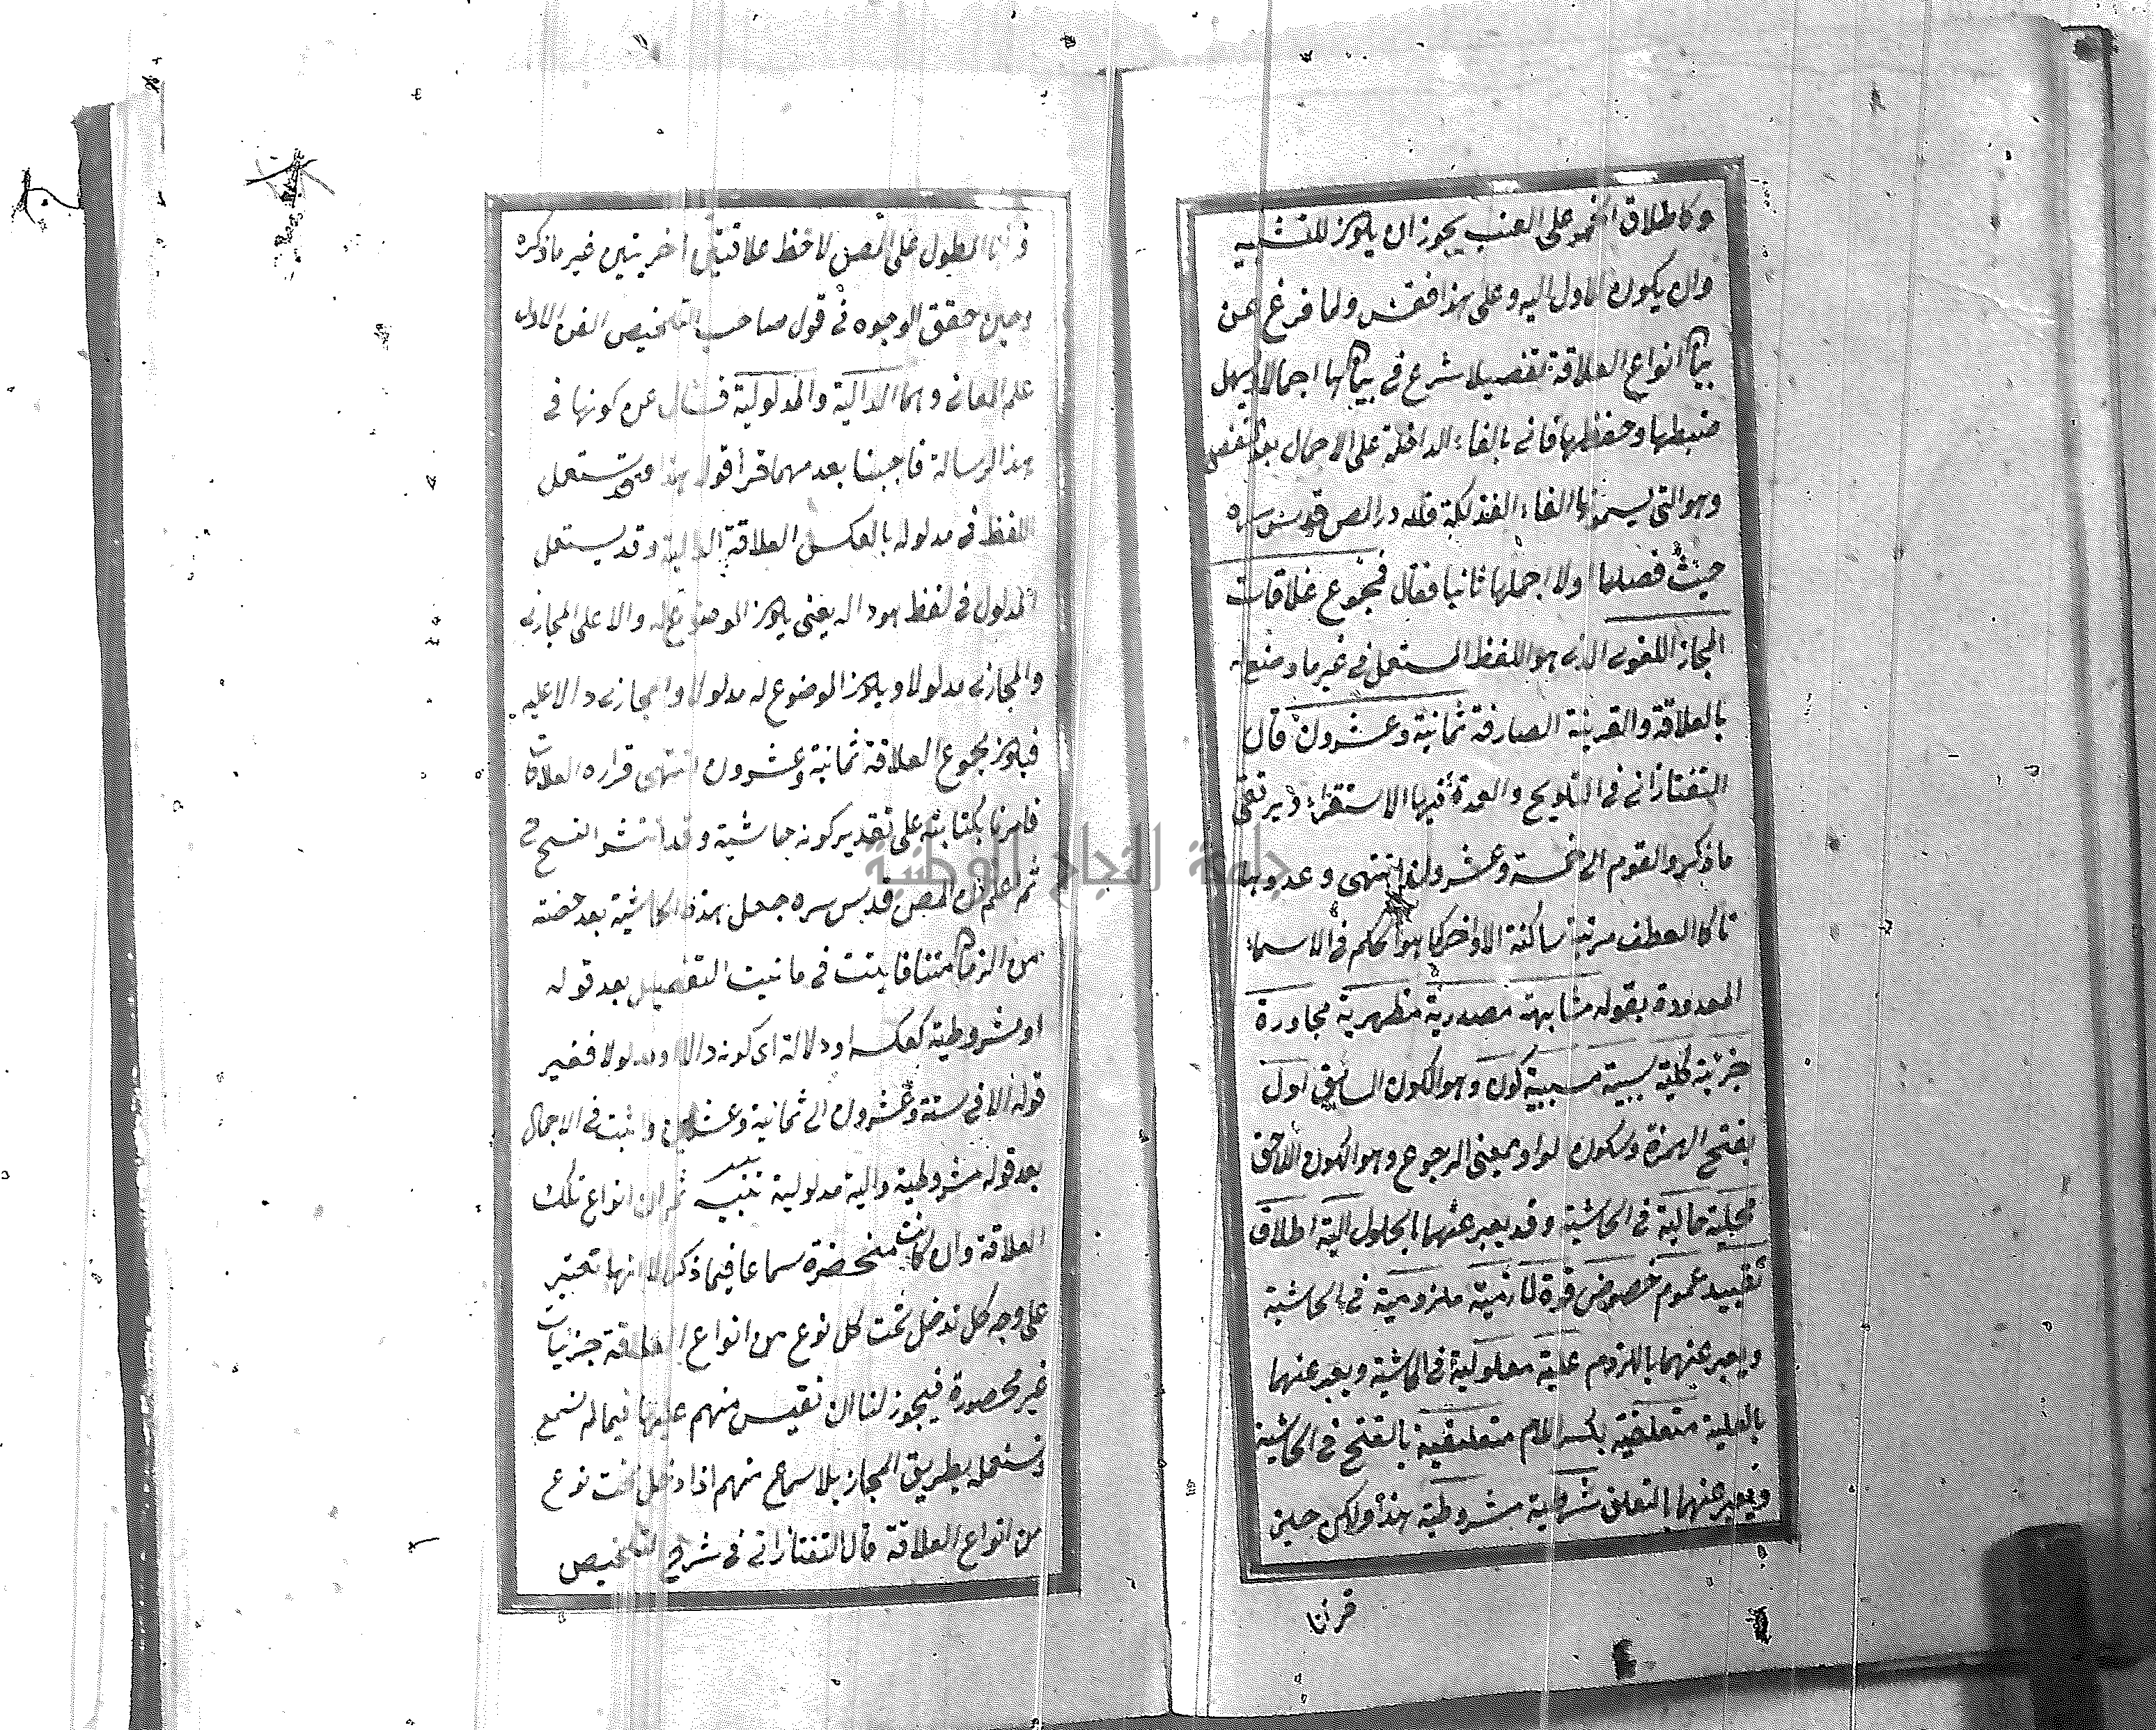 وكاطلاق الخمر على العنب يجوز ان يكون للتشبيه
وان يكون للاول اليه وعلى هذا فقس ولما فرغ عن
بيان انواع العلاقة تفصيلا شرع في بيانها اجمالا ليسهل
ضبطها وحفظها فاتى بالفاء الداخلة على الاجمال بعد التفصيل
وهو التي يسمونها الفاء الفذلكة فلله در المص قدس سره
حيث فصلها اولا اجملها ثانيا فقال فمجموع علاقات
المجاز اللغوى الذى هو اللفظ المستعمل في غير ما وضع له
بالعلاقة والقرينة الصارفة ثمانية وعشرون قال
التفتازانى في التلويح والعمدة فيها الاستقراء ويرتقى
ما ذكره القوم الى خمسة وعشرون انتهى وعدوها
تاركا العطف مرتبة ساكنة الاواخر كما هو الحكم في الاسماء
المعدودة بقوله مشابهة مصدرية مظهرية مجاورة
جزئية كلية سببية مسببية كون وهو الكون السابق اول
بفتح الهمزة وسكون لواو بمعنى الرجوع وهو الكون اللاحق
محلية حالية في الحاشية وقد يعبر عنهما بالحلول الية اطلاق
تقييد عموم خصوص قوة لازمية ملزومية في الحاشية
ويعبر عنهما باللزوم علية معلولية في الحاشية ويعبر عنهما
بالعلية متعلقية بكسر اللام متعلقية بالفتح في الحاشية
ويعبر عنهما بالتعلق شرطية مشروطية هذا ولكن حين
قرأنا
قرأنا المطول على المص لاحظ علاقتين اخريتين غير ما ذكره
وحين حقق الوجوه في قول صاحب التلخيص الفن الاول
علم المعانى وهما الدالية والمدلولية فسأل عن كونها في
هذا الرسالة فاجبنا بعد مهما قرأ قول هذا وقد تستعمل
اللفظ في مدلوله بالعكس العلاقة الدالية وقد يستعمل
المدلول في لفظ هو داله يعنى يكون الموضوع له دالا على المجازى
والمجازى مدلولا ويكون الموضوع له مدلولا والمجازى دالا عليه
فيكون مجموع العلاقة ثمانية وعشرون انتهى قراره العلاقات
فامرنا بكتابته على تقدير كونه حاشية وقد انتشر النسخ
ثم اعلم ان المص قدس سره جعل هذه الحاشية بعد حصته
من الزمان متنا فاثبت في مانيت التفصيل بعد قوله
او مشروطية كعكسه او دلالة اى كونه دالا او مدلولا فغير
قوله الا في ستة وعشرون الى ثمانية وعشرين واثبت في الاجمال
بعد قوله مشروطية دالية مدلولية تنبيه ثم ان انواع تلك
العلاقة وان كانت منحصرة سماعا فيما ذكر الا انها تعتبر
على وجه كل تدخل تحت كل نوع من انواع العلاقة جزئيات
غير محصورة فيجوز لنا ان نقيس منهم عليها فيما لم نسمع
ونستعمله بطريق المجاز بلا سماع منهم اذا دخل تحت نوع
من انواع العلاقة قال التفتازانى في شرح التلخيص
جامعة النجاح الوطنية